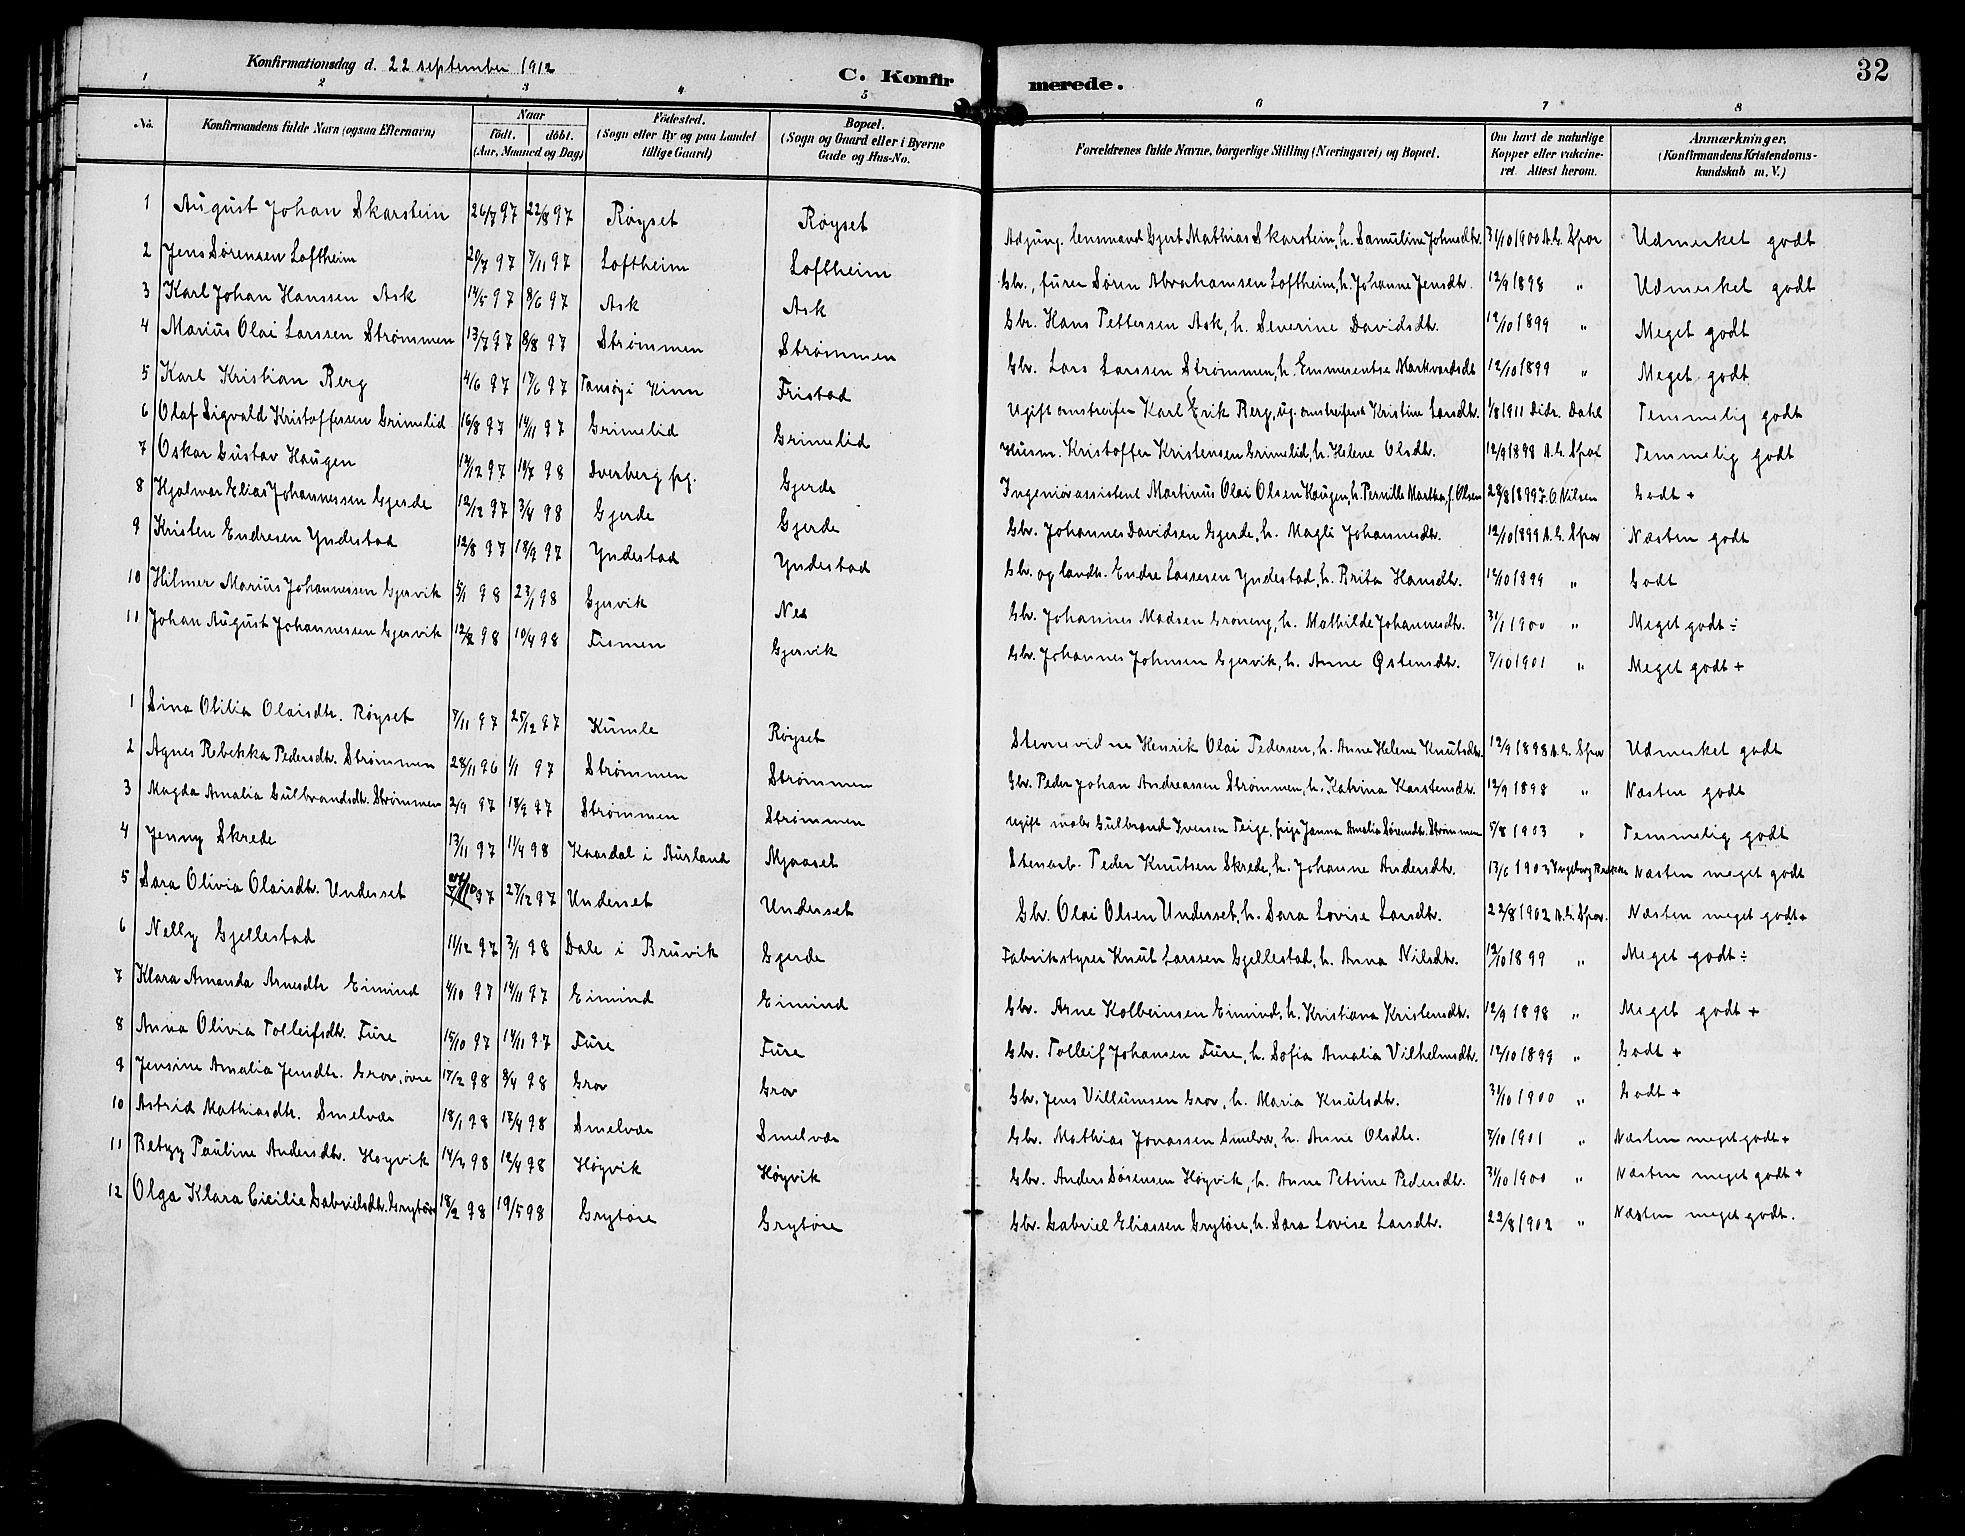 Konfirmationsdag d. 22 september 1912
C. Konfirmerede.
32
1 2 3 4 5 6 7 8
No.
Konfirmandens fulde Navn (ogsaa Efternavn)
Naar
født. døbt.
(Aar, Maaned og Dag)
Fødested.
(Sogn eller By og paa Landet tillige Gaard)
Bopæl.
(Sogn og Gaard eller i Byerne Gade og Hus-No.
Forældrenes fulde Navne, borgerlige Stilling (Næringsvei) og Bopæl.
Om havt de naturlige Kopper eller vakcineret. Attest herom.
Anmærkninger.
(Konfirmandens Kristendomskundskab m. V.)
1 August Johan Skarstein 26/7 97 22/8 97 Røyset Røyset Adjung. lensmand Gjert Mathias Skarstein, h. Samuline Johnsdtr. 31/10 1900 A.G. Spor Udmerket godt
2 Jens Sørensen Loftheim 20/7 97 7/11 97 Loftheim Loftheim Gbr., furer Søren Abrahamsen Loftheim, h. Johanne Jensdtr. 12/9 1898 " Udmerket godt
3 Karl Johan Hanssen Ask 14/5 97 8/6 97 Ask Ask Gbr. Hans Pettersen Ask, h. Severine Davidsdtr. 12/10 1899 " Meget godt
4 Marius Olai Larssen Strømmen 13/7 97 8/8 97 Strømmen Strømmen Gbr. Lars Larssen Strømmen, h. Emmerentse Markvardsdt 12/10 1899 " Meget godt
5 Karl Kristian Berg 4/6 97 17/6 97 Tansøy i Kinn Fristad Ugift omstreifer Karl Erik Berg, ug. omstreifersk Kristine Larsdtr. 1/8 1911 Didr. Dahl Temmelig godt
6 Olaf Sigvald Kristoffersen Grimelid 16/8 97 14/11 97 Grimelid Grimelid Husm. Kristoffer Kristensen Grimelid, h. Helene Olsdtr. 12/9 1898 A.G. Spor Temmelig godt
7 Oskar Gustav Haugen 19/12 97 10/7 98 Sverberg pg. Gjerde Ingeniørassistent Martinus Olai Olsen Haugen, h. Pernille Martha, f. Olsen 29/8 1899 J.O Nilsen Godt +
8 Hjalmar Elias Johannessen Gjerde 12/12 97 3/4 98 Gjerde Gjerde Gbr. Johannes Davidsen Gjerde, h. Magli Johannesdtr. 12/10 1899 A.G. Spor Næsten godt
9 Kristen Endresen Yndestad 12/8 97 19/9 97 Yndestad Yndestad Gbr. og landh. Endre Lassesen Yndestad, h. Brita Hansdtr. 12/10 1899 " Godt
10 Hilmer Marius Johannessen Gjervik 5/1 98 23/1 98 Gjervik Nes Gbr. Johannes Madsen Grøneng, h. Mathilde Johannesdtr. 31/1 1900 " Meget godt ÷
11 Johan August Johannessen Gjervik 12/2 98 10/4 98 Tismen Gjervik Gbr. Johannes Johnsen Gjervik, h. Anne Østensdtr. 7/10 1901 " Meget godt +
1 Sina Otilia Olaisdtr. Røyset 7/11 97 25/12 97 Kumle Røyset Stevnevidne Henrik Olai Pedersen, h. Anne Helene Knutsdtr. 12/9 1898 A.G. Spor Udmerket godt
2 Agnes Rebekka Pedersdtr. Strømmen 28/11 96 1/1 97 Strømmen Strømmen Gbr. Peder Johan Andreassen Strømmen, h. Katrina Karstensdtr. 12/9 1898 " Næsten godt
3 Magda Amalia Gulbrandsdtr. Strømmen 2/9 97 19/9 97 Strømmen Strømmen Ugift maler Gulbrand Iversen Teige, pige Janna Amalia Sørensdtr. Strømmen 5/8 1903 " Temmelig godt
4 Jenny Skrede 13/11 97 11/4 98 Kaardal i Aurland Mjaaset Stenarb. Peder Knutsen Skrede, h. Johanne Andersdtr. 13/6 1903 Ingeborg Næsten meget godt
5 Sara Olivia Olaisdtr. Underset 97 27/12 97 Underset Underset Gbr. Olai Olsen Underset, h. Sara Lovise Larsdtr. 22/8 1902 A.G. Spor. Næsten meget godt +
6 Nelly Gjellestad 11/12 97 3/1 98 Dale i Bruvik Gjerde Fabrikstyrer Knut Larssen Gjellestad, h. Anna Nilsdtr. 12/10 1899 " Meget godt ÷
7 Klara Amanda Arnesdtr Eimind 4/10 97 14/11 97 Eimind Eimind Gbr. Arne Kolbeinsen Eimind, h. Kristiana Kristensdtr. 12/9 1898 " Meget godt +
8 Anna Olivia Tolleifsdtr. Fure 15/10 97 14/11 97 Fure Fure Gbr. Tolleif Johansen Fure, h. Sofia Amalia Vilhelmsdtr. 12/10 1899 " Godt +
9 Jensine Amalia Jensdtr. Grov, øvre 17/2 98 8/4 98 Grov Grov Gbr. Jens Villumsen Grov, h. Maria Knutsdtr. 31/10 1900 " Godt +
10 Astrid Mathiasdtr. Smelvær 18/1 98 13/4 98 Smelvær Smelvær Gbr. Mathias Jonassen Smelvær, h. Anne Olsdtr. 7/10 1901 " Næsten meget godt +
11 Betzy Pauline Andersdtr. Høyvik 14/2 98 12/4 98 Høyvik Høyvik Gbr. Anders Sørensen Høyvik, h. Anne Petrine Pedersdtr. 31/10 1900 " Næsten meget godt +
12 Olga Klara Cicilie Gabrielsdtr. Grytøre 18/2 98 19/5 98 Grytøre Grytøre Gbr. Gabriel Eliassen Grytøre, h. Sara Lovise Larsdtr. 22/8 1902 " Næsten meget godt.